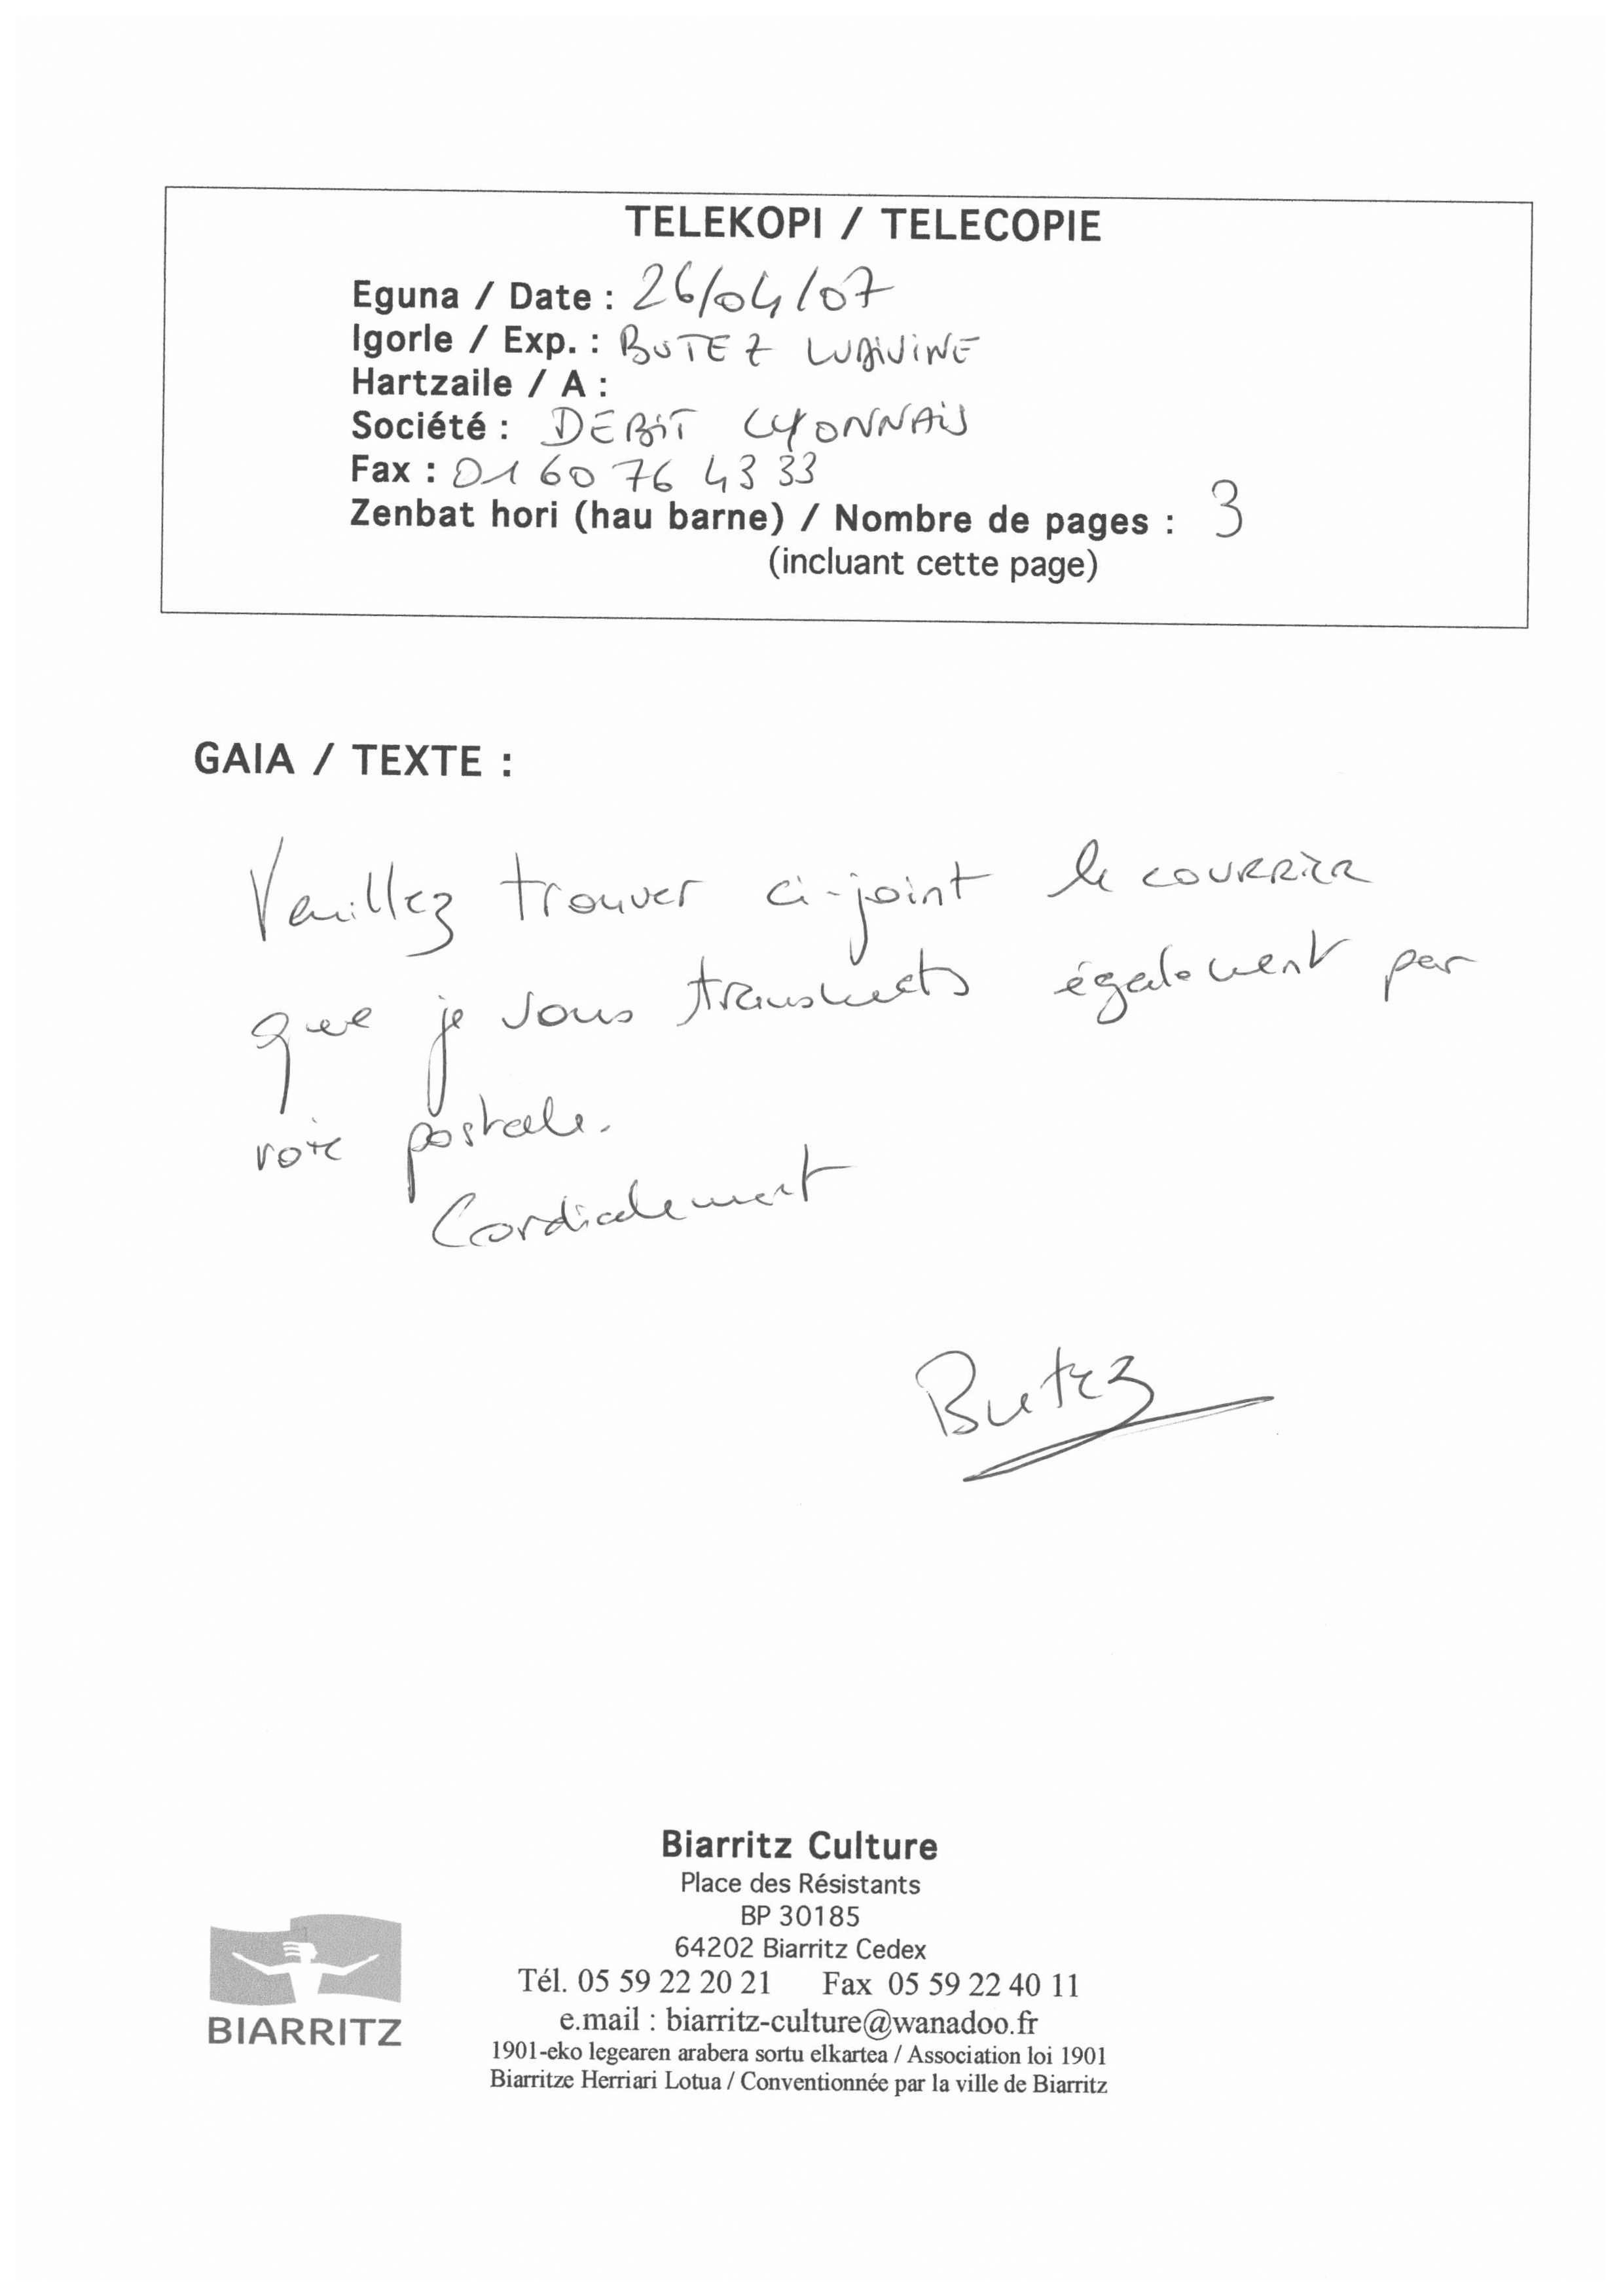 TELEKOPI / TELECOPIE
Eguna / Date : 26/04/07
Igorle / Exp. : BUTEZ LUDIVINE
Hartzaile / A :
Société : DEBIT LYONNAIS
Fax : 01 60 76 43 33
Zenbat hori (hau barne) / Nombre de pages : 3
(incluant cette page)
GAIA / TEXTE :
Veuillez trouver ci-joint le courrier
que je vous transmets également par
voie postale.
Cordialement
Butez
Biarritz Culture
Place des Résistants
BP 30185
64202 Biarritz Cedex
Tél. 05 59 22 20 21 Fax 05 59 22 40 11
e.mail : biarritz-culture@wanadoo.fr
1901-eko legearen arabera sortu elkartea / Association loi 1901
Biarritze Herriari Lotua / Conventionnée par la ville de Biarritz
BIARRITZ